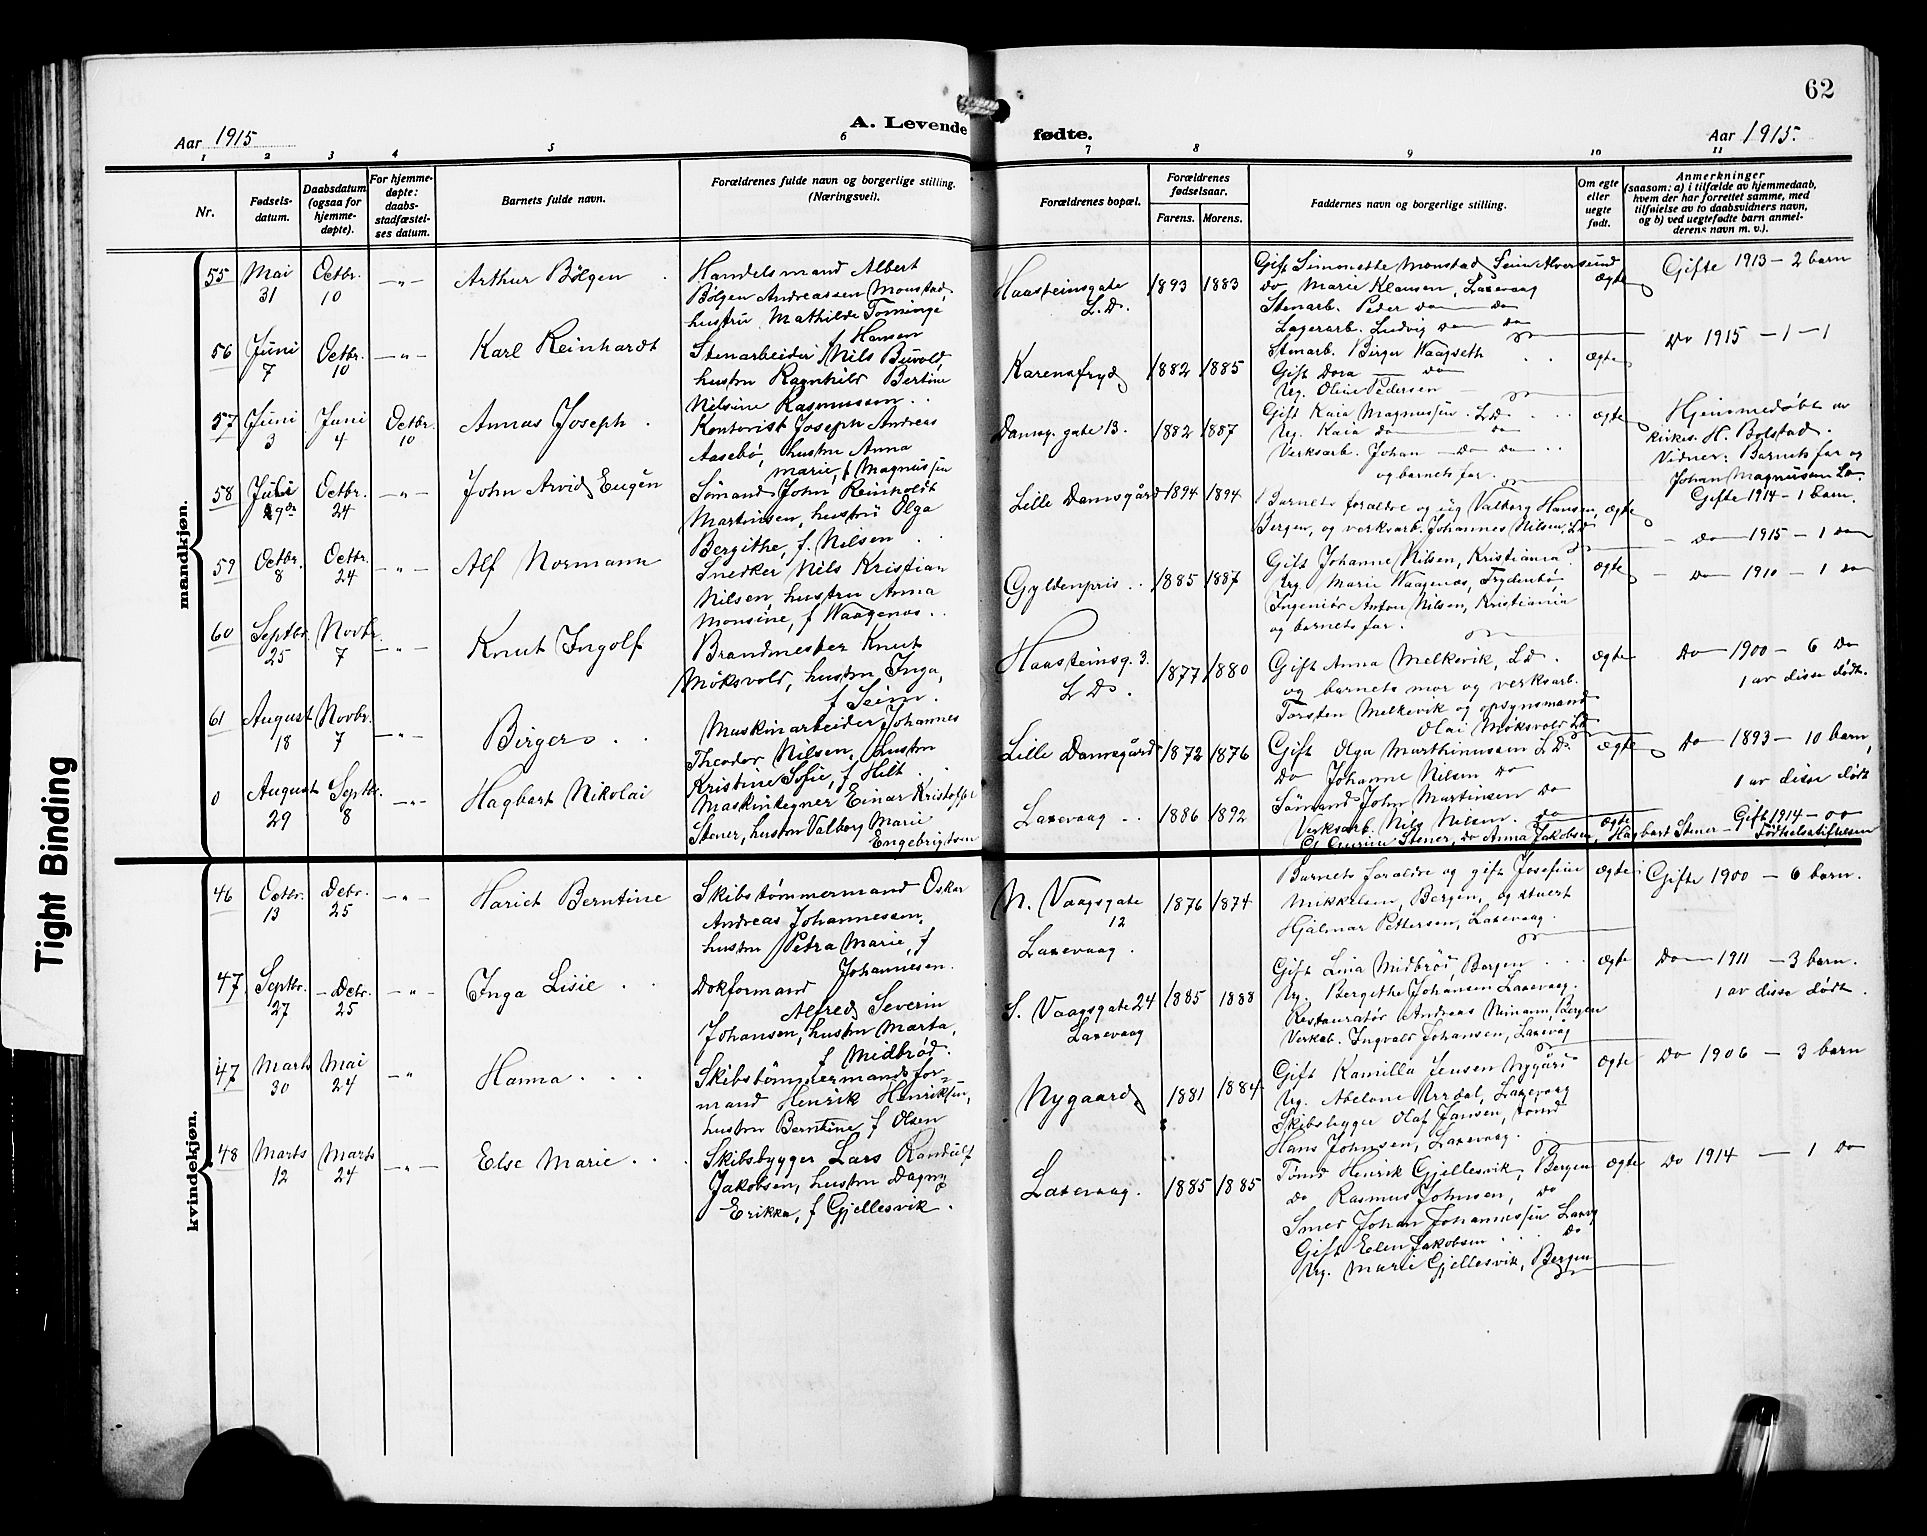 62
Aar 1915
A. Levende fødte.
Aar 1915.
1 2 3 4 5 6 7 8 9 10 11
Nr.
Fødsels-
datum.
Daabsdatum
(ogsaa for
hjemme-
døpte).
For hjemme-
døpte:
daabs-
stadfæstel-
ses datum.
Barnets fulde navn.
Forældrenes fulde navn og borgerlige stilling.
(Næringsvei).
Forældrenes bopæl.
Forældrenes
fødselsaar.
Farens. Morens.
Faddernes navn og borgerlige stilling.
Om egte
eller
uegte
født.
Anmerkninger
(saasom: a) i tilfælde av hjemmedaab,
hvem der har forrettet samme, med
tilføielse av to daabsvidners navn,
og b) ved uegtefødte barn anmel-
derens navn m. v.).
mandkjøn.
55 Mai 31 Octbr. 10 —„—
Arthur Bølgen
Handelsmand Albert
Bølgen Andreassen Monstad,
hustru Mathilde Torminge
f Hansen
Haasteinsgate
L.D.
1893 1883
Gift Simmette Monstad Seim Alversund
do Marie Klausen, Laxevaag
Stenarb. Peder do do
Lagerarb. Ludvig do do
ægte
Gifte 1913 — 2 barn
56 Juni 7 Octbr. 10 —„—
Karl Reinhardt
Stenarbeider Nils Buvold,
hustru Ragnhild Bertine
Nilsine Rasmussen
Karensfryd
1882 1885
Stenarb. Birger Waagseth
Gift Dora — do
Ug. Olini Pedersen
ægte
Do 1915 — 1 — 1
57 Juni 3 Juni 4 Octbr. 10
Annas Joseph
Kontorist Joseph Andreas
Aasebø, hustru Anna
Marie, f Magnussen
Damsg. gate 13.
1882 1887
Gift Kaia Magnussen L.D.
Ug. Kaia do do
Verksarb. Johan do do
og barnets far.
ægte
Hjemmedøbt av
kirkes. H. Bolstad.
Vidner: Barnets far og
Johan Magnussen L.D.
58 Juli 19de Octbr. 24 —„—
John Arvid Eugen
Sømand John Reinholdt
Martinsen, hustru Olga
Bergithe, f. Nilsen
Lille Damsgård
1894 1894
Barnets foraldre og ug Valborg Hansen,
Bergen, og verksarb. Johannes Nilsen, L.D.
ægte
Gifte 1914 — 1 barn.
— do — 1915 — 1 do
59 Octbr. 8 Octbr. 24 —„—
Alf Normann
Snedker Nils Kristian
Nilsen, hustru Anna
Monsine, f Waagenes
Gyldenpris
1885 1887
Gift Johanne Nilsen, Kristiania
Ug Marie Waagenes, Frydenbø
Ingeniør Anton Nilsen, Kristiania
og barnets far.
ægte
— Do 1910 — 1 do
60 Septbr. 25 Novbr. 7 —„—
Knut Ingolf
Brandmester Knut
Møksvold, hustru Inga,
f Seim.
Haasteinsg. 3.
L D.
1877 1880
Gift Anna Melkevik, L.D.
og barnets mor og verksarb.
Torsten Melkevik og opsynsmand
Olai Møksvold L.D.
ægte
Do — 1900 — 6 Do
1 av disse døde.
61 August 18 Novbr. 7 —„—
Birger
Maskinarbeider Johannes
Theodor Nilsen, hustru
Kristine Sofie, f Hilt
Lille Damsgård
1872 1876
Gift Olga Marthinussen L.D.
Do Johanne Nilsen Do
Sømand John Martinsen Do
Verksarb. Nils Nilsen. do
ægte
Do — 1893 — 10 barn,
1 av disse dødt
0 August 29 Septbr. 8 —„—
Hagbart Nikolai
Maskintegner Einar Kristoffer
Stener, hustru Valborg Marie
Engebrigtsen
Laxevaag
1886 1892
Stener, do Anna Jakobsen, Hagbart Stener
ægte
Gift 1914 — 00
Fødselsstiftelsen
kvindekjøn.
46 Octbr. 13 Decbr. 25 —„—
Hariet Berntine
Skibstømmermand Oskar
Andreas Johannessen,
hustru Petra Marie, f
Johannesen.
N. Vaagsgate
12
Laxevaag.
1876 1874
Barnets foraldre og gift Josefine
Mikkelsen, Bergen, og stuert
Hjalmar Pettersen, Laxevaag.
ægte
Gifte 1900 — 6 barn.
47. Septbr. 27 Decbr. 25 —„—
Inga Lisie
Dokformand
Alfred Severin
Johansen, hustru Marta,
f Midbrød.
S. Vaagsgate 24
Laxevaag
1885 1888
Gift Lina Midbrød Bergen
Ug. Bergithe Johansen Laxevaag.
Restauratør Andreas Nimann, Bergen
Verkab. Ingvald Johansen, Laxevåg
ægte
Do — 1911 — 3 barn.
1 av disse dødt.
47 Marts 30 Mai 24 —„
Hanna
Skibstømmermandsfor-
mand Henrik Henriksen,
hustru Berntine f Olsen
Nygaard
1881 1884
Gift Kamilla Jensen Nygård
Ug. Abelone Urdal, Laxevaag
Skibsbygger Olaf Jansen, tømd
Hans Johnsen, Laxevaag.
ægte
Do 1906 — 3 barn
48 Marts 12 Marts 24 —„—
Else Marie
Skibsbygger Lars Randulf
Jakobsen, hustru Dagny
Erikka, f Gjellesvik.
Laxevaag.
1885 1885
Tømd Henrik Gjellesvik, Bergen
do Rasmus Johnsen, do
Smed Johan Johannessen Laxvg
Gift Elen Jakobsen Do
Ug. Marie Gjellesvik, Bergen
ægte
Do 1914 — 1 Do
Tight Binding